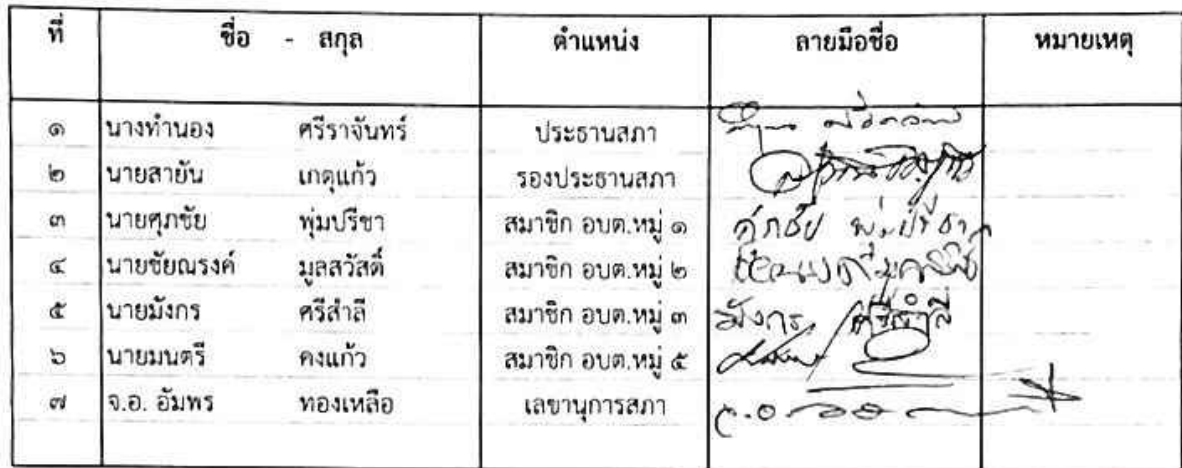 ที่ ชื่อ - สกุล ตำแหน่ง ลายมือชื่อ หมายเหตุ
๑ นางทำนอง ศรีราจันทร์ ประธานสภา
๒ นายสายัน เกตุแก้ว รองประธานสภา
๓ นายศุภชัย พุ่มปรีชา สมาชิก อบต.หมู่ ๑ ศุภชัย พุ่มปรีชา
๔ นายชัยณรงค์ มูลสวัสดิ์ สมาชิก อบต.หมู่ ๒
๕ นายมังกร ศรีสำลี สมาชิก อบต.หมู่ ๓ มังกร ศรีสำลี
๖ นายมนตรี คงแก้ว สมาชิก อบต.หมู่ ๕
๗ จ.อ. อัมพร ทองเหลือ เลขานุการสภา จ.อ